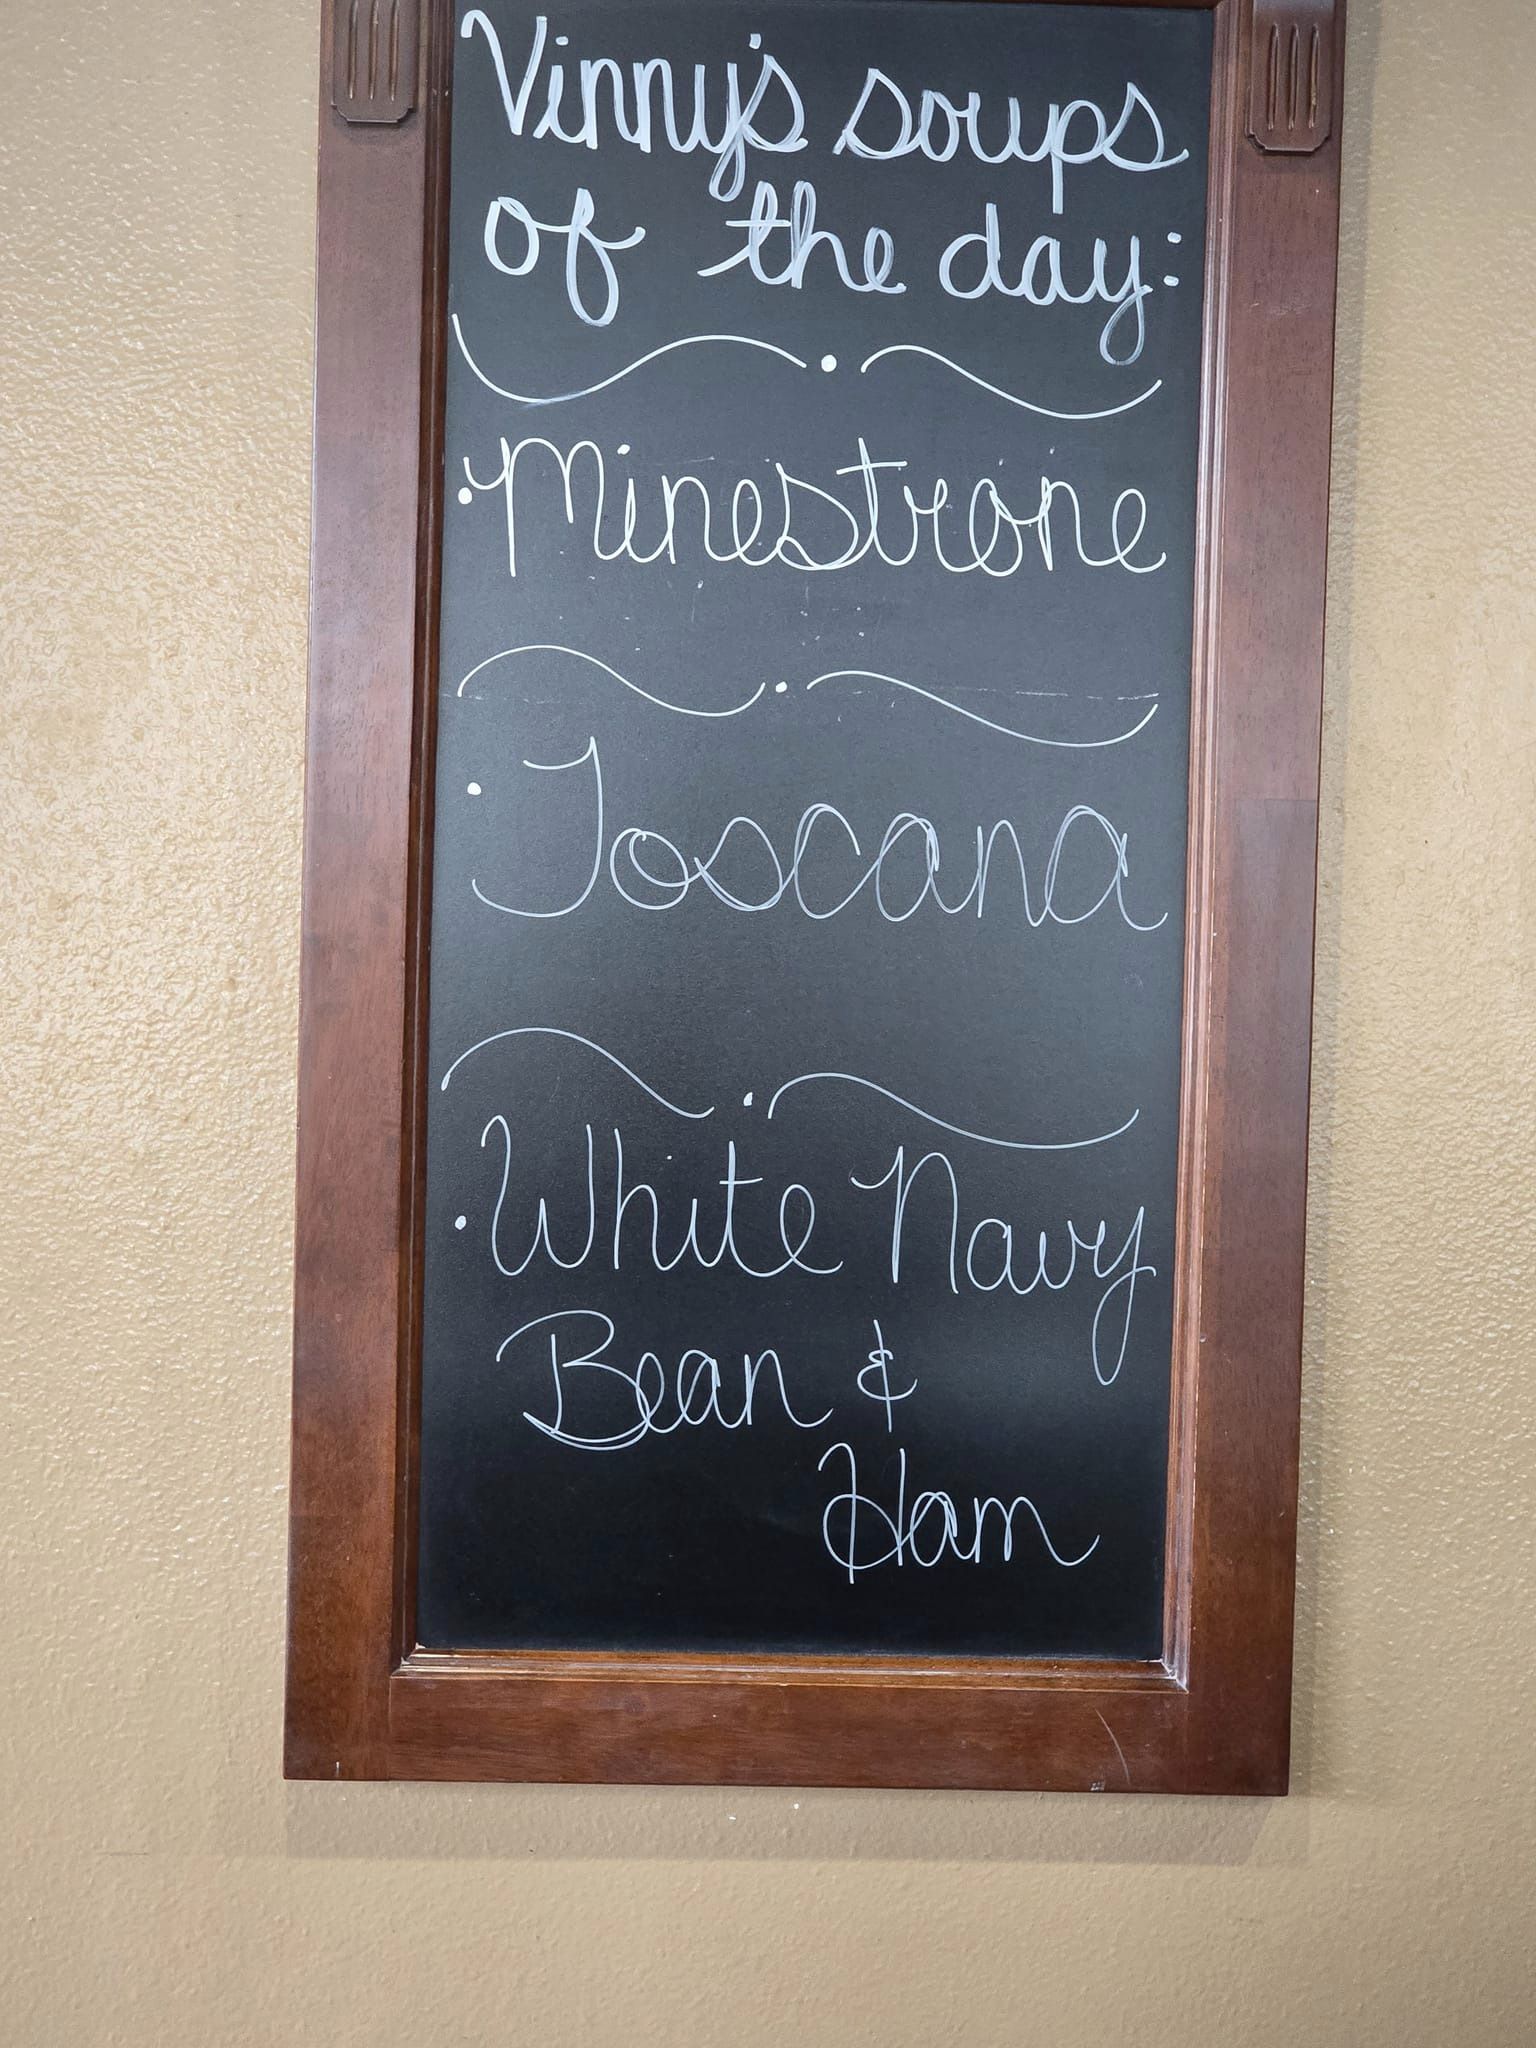 Vinny's soups
of the day:
• Minestrone
• Toscana
• White Navy
Bean &
Ham